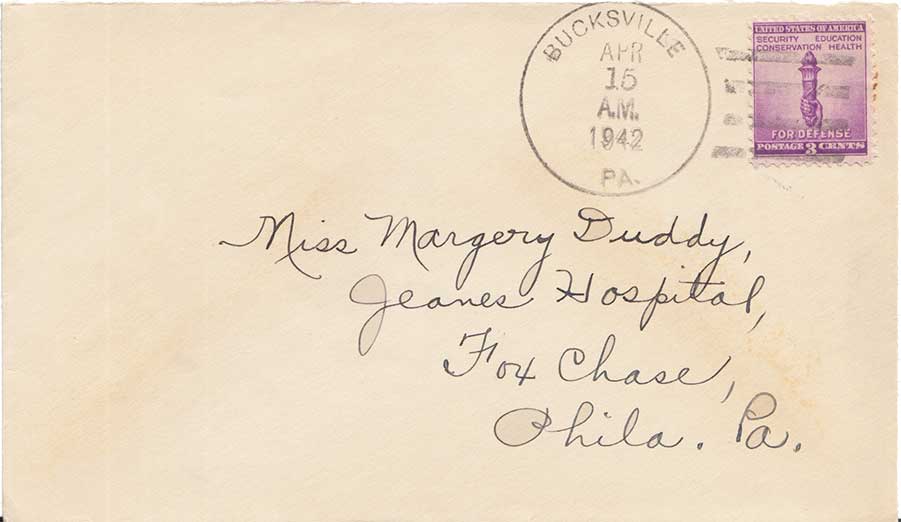 BUCKSVILLE
APR
15
A.M.
1942
PA.
UNITED STATES OF AMERICA
SECURITY EDUCATION
CONSERVATION HEALTH
FOR DEFENSE
POSTAGE 3 CENTS
Miss Margery Duddy,
Jeanes Hospital,
Fox Chase,
Phila. Pa.